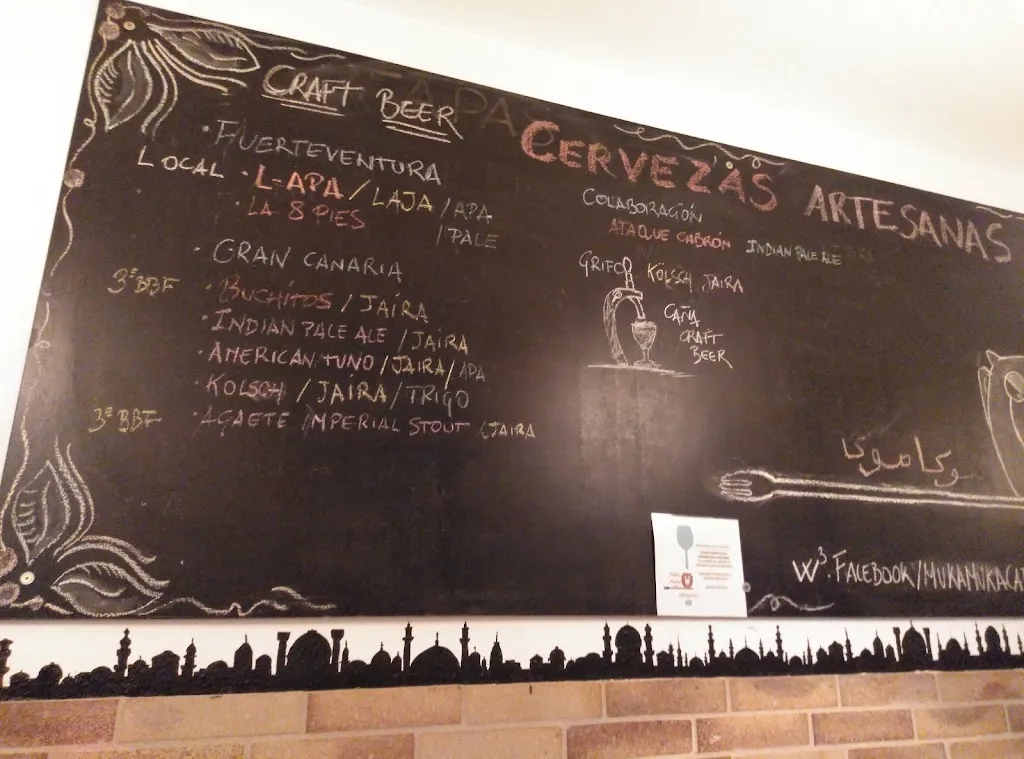 CRAFT BEER
CERVEZAS ARTESANAS
· FUERTEVENTURA
LOCAL · L-APA / LAJA / APA
· LA 8 PIES / PALE
· GRAN CANARIA
3º BBF · BUCHITOS / JAIRA
· INDIAN PALE ALE / JAIRA
· AMERICAN TUNO / JAIRA / APA
· KOLSCH / JAIRA / TRIGO
3º BBF · AGAETE IMPERIAL STOUT / JAIRA
COLABORACIÓN
ATAQUE CABRÓN INDIAN PALE ALE
GRIFO KÖLSCH JAIRA
CAÑA
CRAFT
BEER
موكا موكا
W³. FACEBOOK/MUKAMUKACA